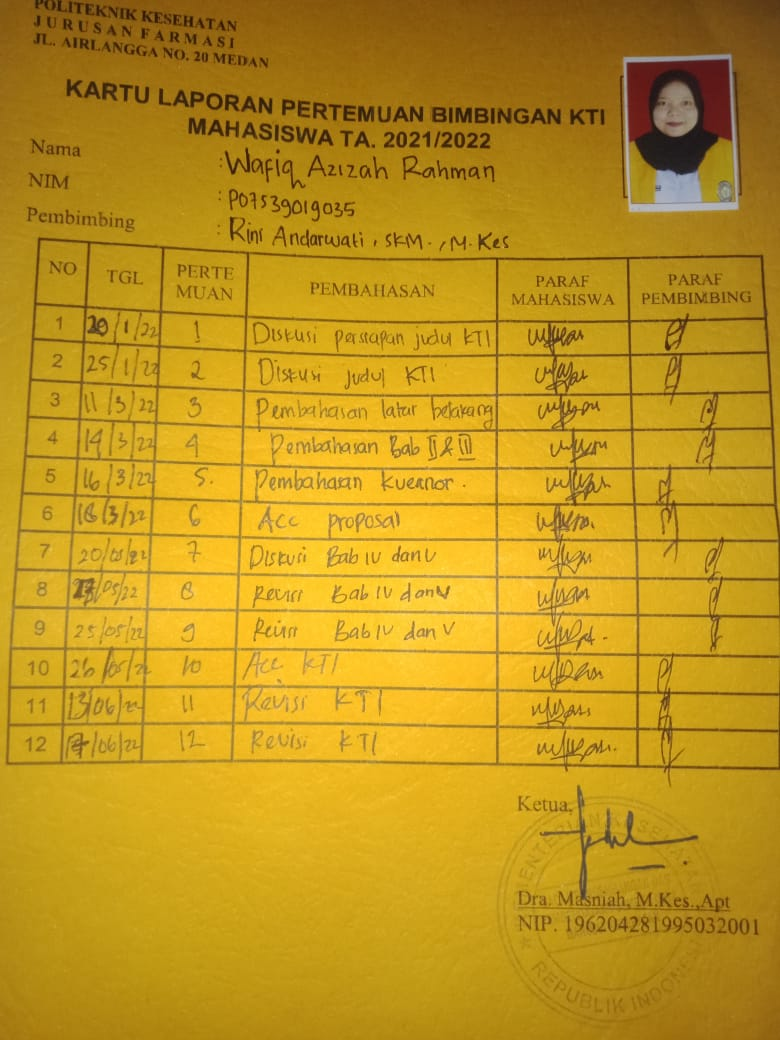 POLITEKNIK KESEHATAN
JURUSAN FARMASI
JL. AIRLANGGA NO. 20 MEDAN
KARTU LAPORAN PERTEMUAN BIMBINGAN KTI
MAHASISWA TA. 2021/2022
Nama : Wafiq Azizah Rahman
NIM : P07539019035
Pembimbing : Rini Andarwati, SKM., M.Kes
NO TGL PERTE MUAN PEMBAHASAN PARAF MAHASISWA PARAF PEMBIMBING
1 20/1/22 1 Diskusi persiapan judul KTI
2 25/1/22 2 Diskusi judul KTI
3 11/3/22 3 Pembahasan latar belakang
4 14/3/22 4 Pembahasan Bab II & III
5 16/3/22 5. Pembahasan
6 18/3/22 6 Acc proposal
7 20/05/22 7 Diskusi Bab IV dan V
8 /05/22 8 Revisi Bab IV dan V
9 25/05/22 9 Revisi Bab IV dan V
10 26/05/22 10 Acc KTI
11 13/06/22 11 Revisi KTI
12 /06/22 12 Revisi KTI
Ketua,
Dra. Masniah, M.Kes.,Apt
NIP. 196204281995032001
REPUBLIK INDONESIA